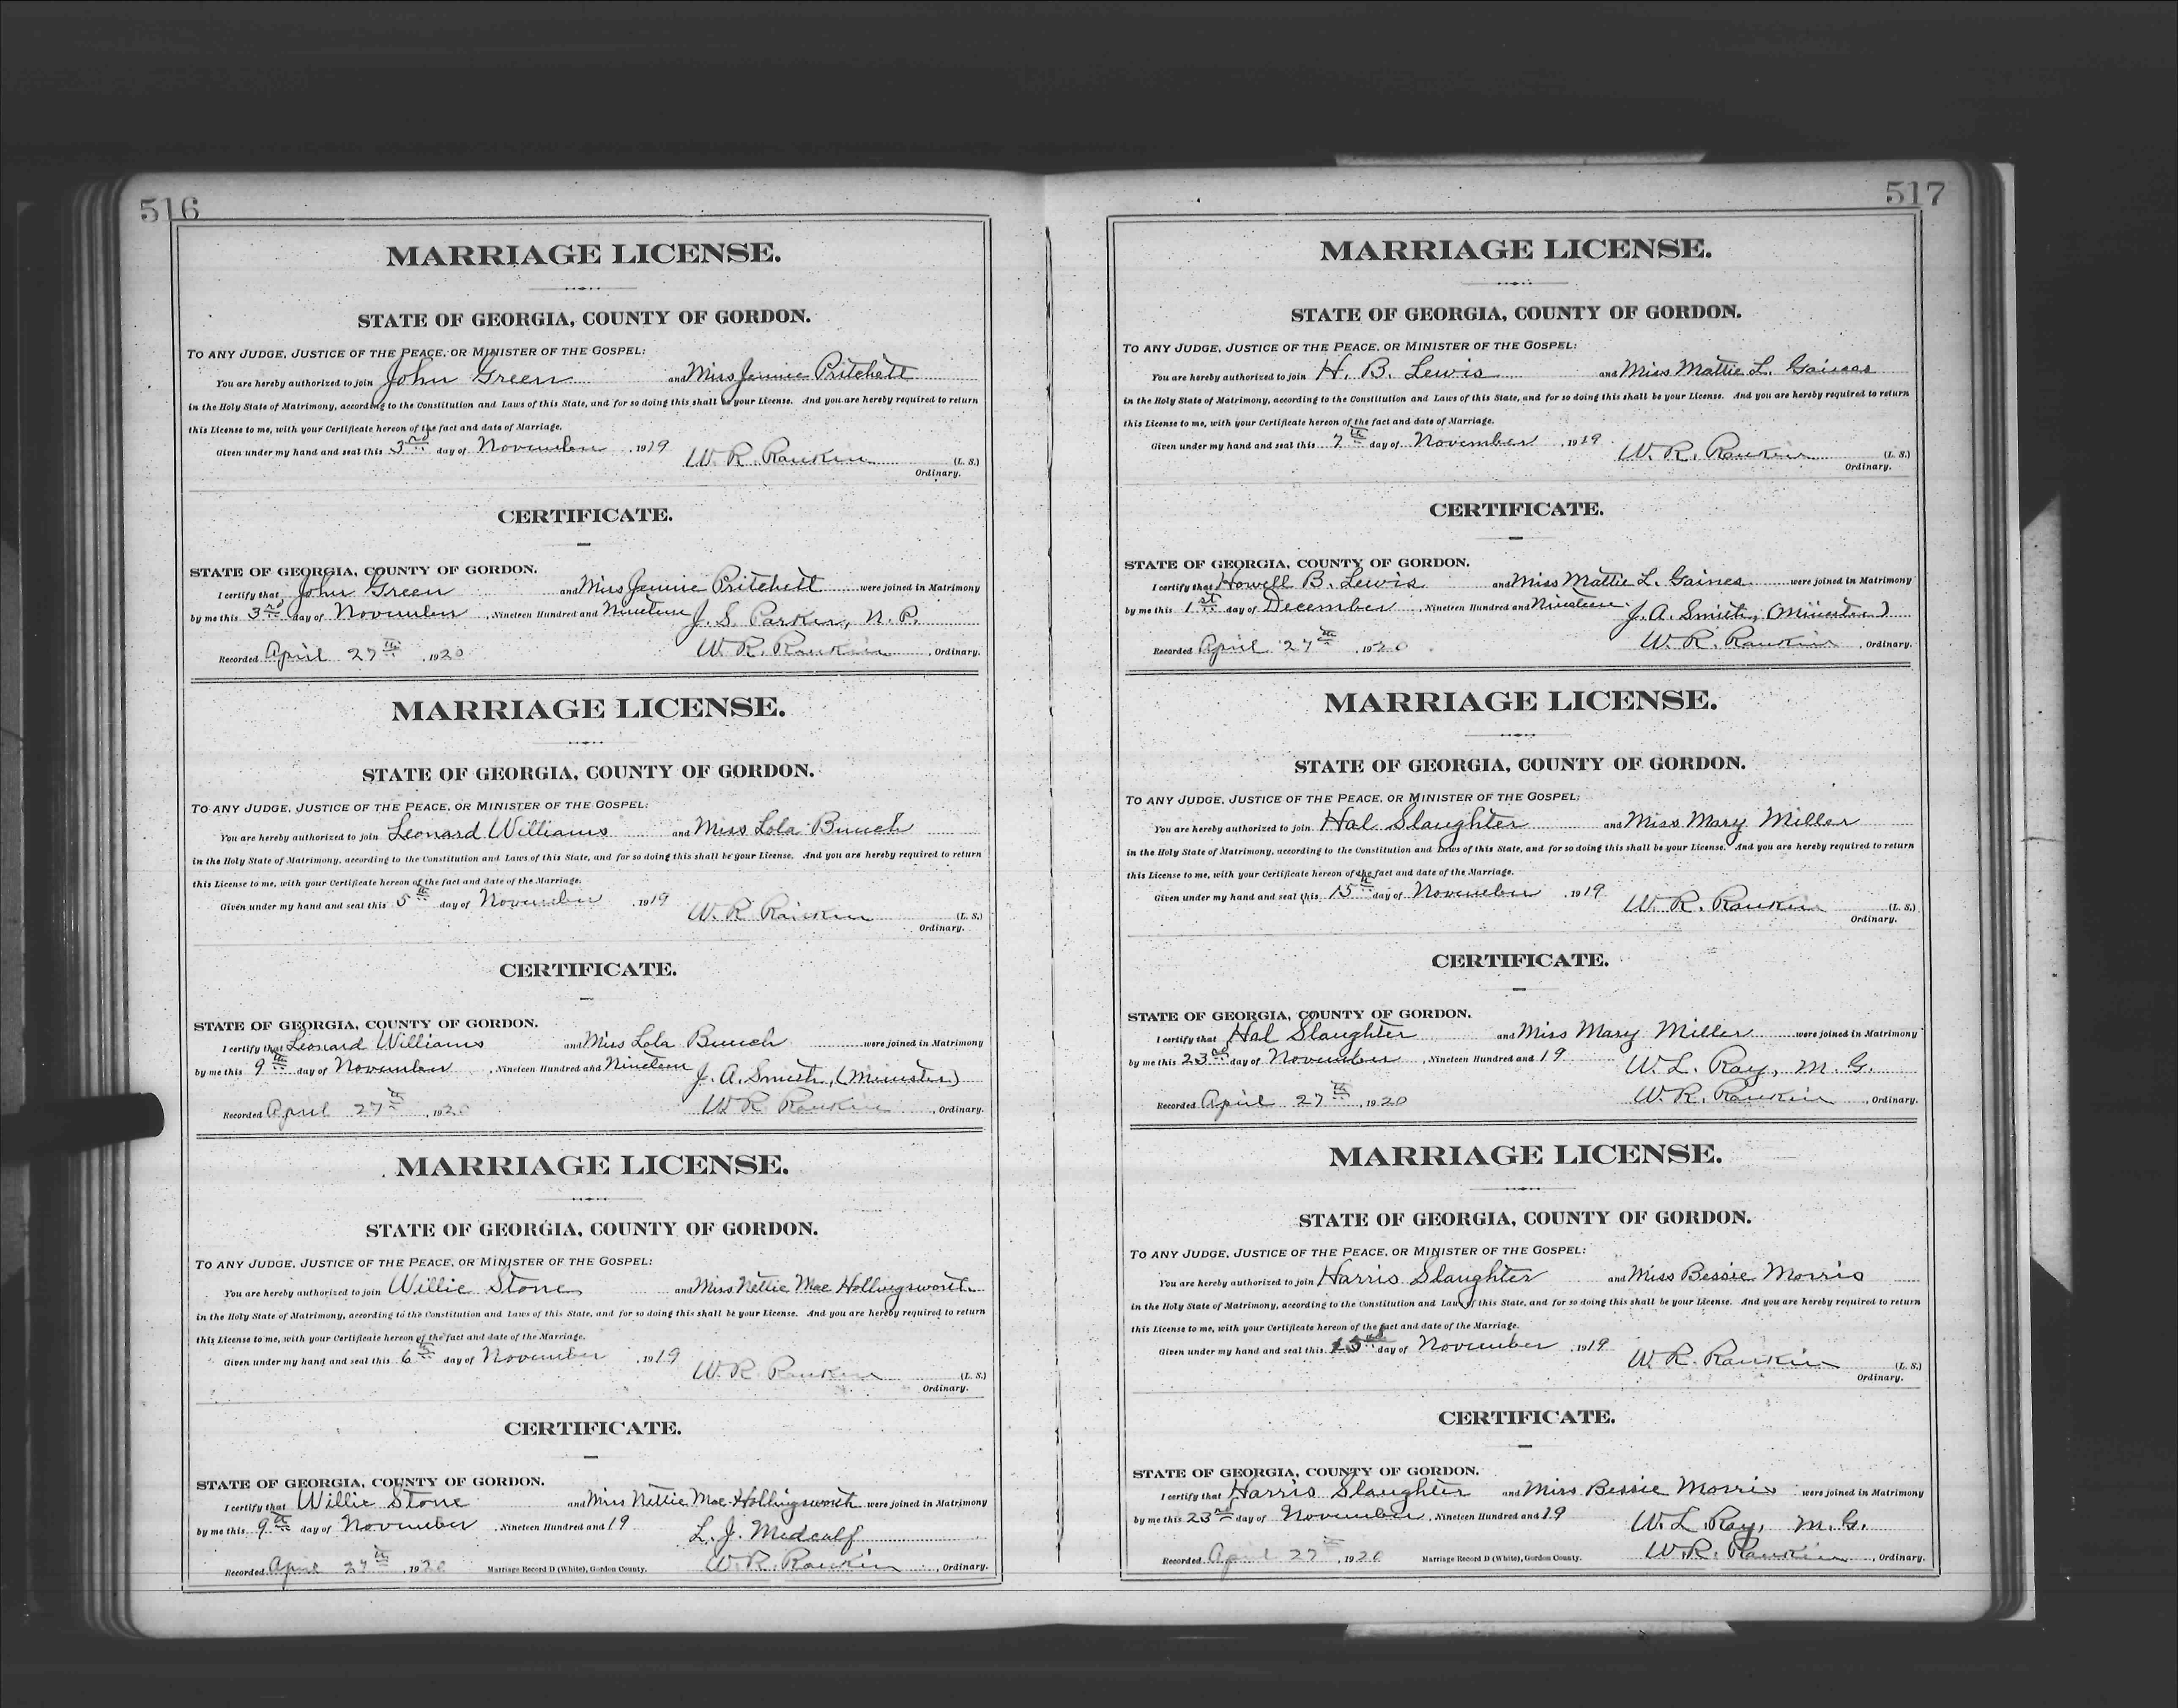 516
MARRIAGE LICENSE.
STATE OF GEORGIA, COUNTY OF GORDON.
TO ANY JUDGE, JUSTICE OF THE PEACE, OR MINISTER OF THE GOSPEL:
You are hereby authorized to join John Green and Miss Jennie Pritchett
in the Holy State of Matrimony, according to the Constitution and Laws of this State, and for so doing this shall be your License. And you are hereby required to return
this License to me, with your Certificate hereon of the fact and date of Marriage.
Given under my hand and seal this 3rd day of November, 1919 W. R. Rankin (L. S.)
Ordinary.
CERTIFICATE.
STATE OF GEORGIA, COUNTY OF GORDON.
I certify that John Green and Miss Jennie Pritchett were joined in Matrimony
by me this 3rd day of November, Nineteen Hundred and Nineteen J. S. Parker, N. P.
Recorded April 27th, 1920 W. R. Rankin, Ordinary.
MARRIAGE LICENSE.
STATE OF GEORGIA, COUNTY OF GORDON.
TO ANY JUDGE, JUSTICE OF THE PEACE, OR MINISTER OF THE GOSPEL:
You are hereby authorized to join Leonard Williams and Miss Lola Bunch
in the Holy State of Matrimony, according to the Constitution and Laws of this State, and for so doing this shall be your License. And you are hereby required to return
this License to me, with your Certificate hereon of the fact and date of the Marriage.
Given under my hand and seal this 5th day of November, 1919 W. R. Rankin (L. S.)
Ordinary.
CERTIFICATE.
STATE OF GEORGIA, COUNTY OF GORDON.
I certify that Leonard Williams and Miss Lola Bunch were joined in Matrimony
by me this 9th day of November, Nineteen Hundred and Nineteen J. A. Smith, (Minister)
Recorded April 27th, 1920 W. R. Rankin, Ordinary.
MARRIAGE LICENSE.
STATE OF GEORGIA, COUNTY OF GORDON.
TO ANY JUDGE, JUSTICE OF THE PEACE, OR MINISTER OF THE GOSPEL:
You are hereby authorized to join Willie Stone and Miss Nettie Mae Hollingsworth
in the Holy State of Matrimony, according to the Constitution and Laws of this State, and for so doing this shall be your License. And you are hereby required to return
this License to me, with your Certificate hereon of the fact and date of the Marriage.
Given under my hand and seal this 6th day of November, 1919 W. R. Rankin (L. S.)
Ordinary.
CERTIFICATE.
STATE OF GEORGIA, COUNTY OF GORDON.
I certify that Willie Stone and Miss Nettie Mae Hollingsworth were joined in Matrimony
by me this 9th day of November, Nineteen Hundred and 19 L. J. Medcalf
Recorded April 27th, 1920 Marriage Record D (White), Gordon County. W. R. Rankin, Ordinary.
517
MARRIAGE LICENSE.
STATE OF GEORGIA, COUNTY OF GORDON.
TO ANY JUDGE, JUSTICE OF THE PEACE, OR MINISTER OF THE GOSPEL:
You are hereby authorized to join H. B. Lewis and Miss Mattie L. Gaines
in the Holy State of Matrimony, according to the Constitution and Laws of this State, and for so doing this shall be your License. And you are hereby required to return
this License to me, with your Certificate hereon of the fact and date of Marriage.
Given under my hand and seal this 7th day of November, 1919 W. R. Rankin (L. S.)
Ordinary.
CERTIFICATE.
STATE OF GEORGIA, COUNTY OF GORDON.
I certify that Howell B. Lewis and Miss Mattie L. Gaines were joined in Matrimony
by me this 1st day of December, Nineteen Hundred and Nineteen J. A. Smith, (Minister)
Recorded April 27th, 1920 W. R. Rankin, Ordinary.
MARRIAGE LICENSE.
STATE OF GEORGIA, COUNTY OF GORDON.
TO ANY JUDGE, JUSTICE OF THE PEACE, OR MINISTER OF THE GOSPEL:
You are hereby authorized to join Hal Slaughter and Miss Mary Miller
in the Holy State of Matrimony, according to the Constitution and Laws of this State, and for so doing this shall be your License. And you are hereby required to return
this License to me, with your Certificate hereon of the fact and date of the Marriage.
Given under my hand and seal this 15th day of November, 1919 W. R. Rankin (L. S.)
Ordinary.
CERTIFICATE.
STATE OF GEORGIA, COUNTY OF GORDON.
I certify that Hal Slaughter and Miss Mary Miller were joined in Matrimony
by me this 23rd day of November, Nineteen Hundred and 19 W. L. Ray, M. G.
Recorded April 27th, 1920 W. R. Rankin, Ordinary.
MARRIAGE LICENSE.
STATE OF GEORGIA, COUNTY OF GORDON.
TO ANY JUDGE, JUSTICE OF THE PEACE, OR MINISTER OF THE GOSPEL:
You are hereby authorized to join Harris Slaughter and Miss Bessie Morris
in the Holy State of Matrimony, according to the Constitution and Laws of this State, and for so doing this shall be your License. And you are hereby required to return
this License to me, with your Certificate hereon of the fact and date of the Marriage.
Given under my hand and seal this day of November, 1919 W. R. Rankin (L. S.)
Ordinary.
CERTIFICATE.
STATE OF GEORGIA, COUNTY OF GORDON.
I certify that Harris Slaughter and Miss Bessie Morris were joined in Matrimony
by me this 23rd day of November, Nineteen Hundred and 19 W. L. Ray, M. G.
Recorded April 27th, 1920 Marriage Record D (White), Gordon County. W. R. Rankin, Ordinary.